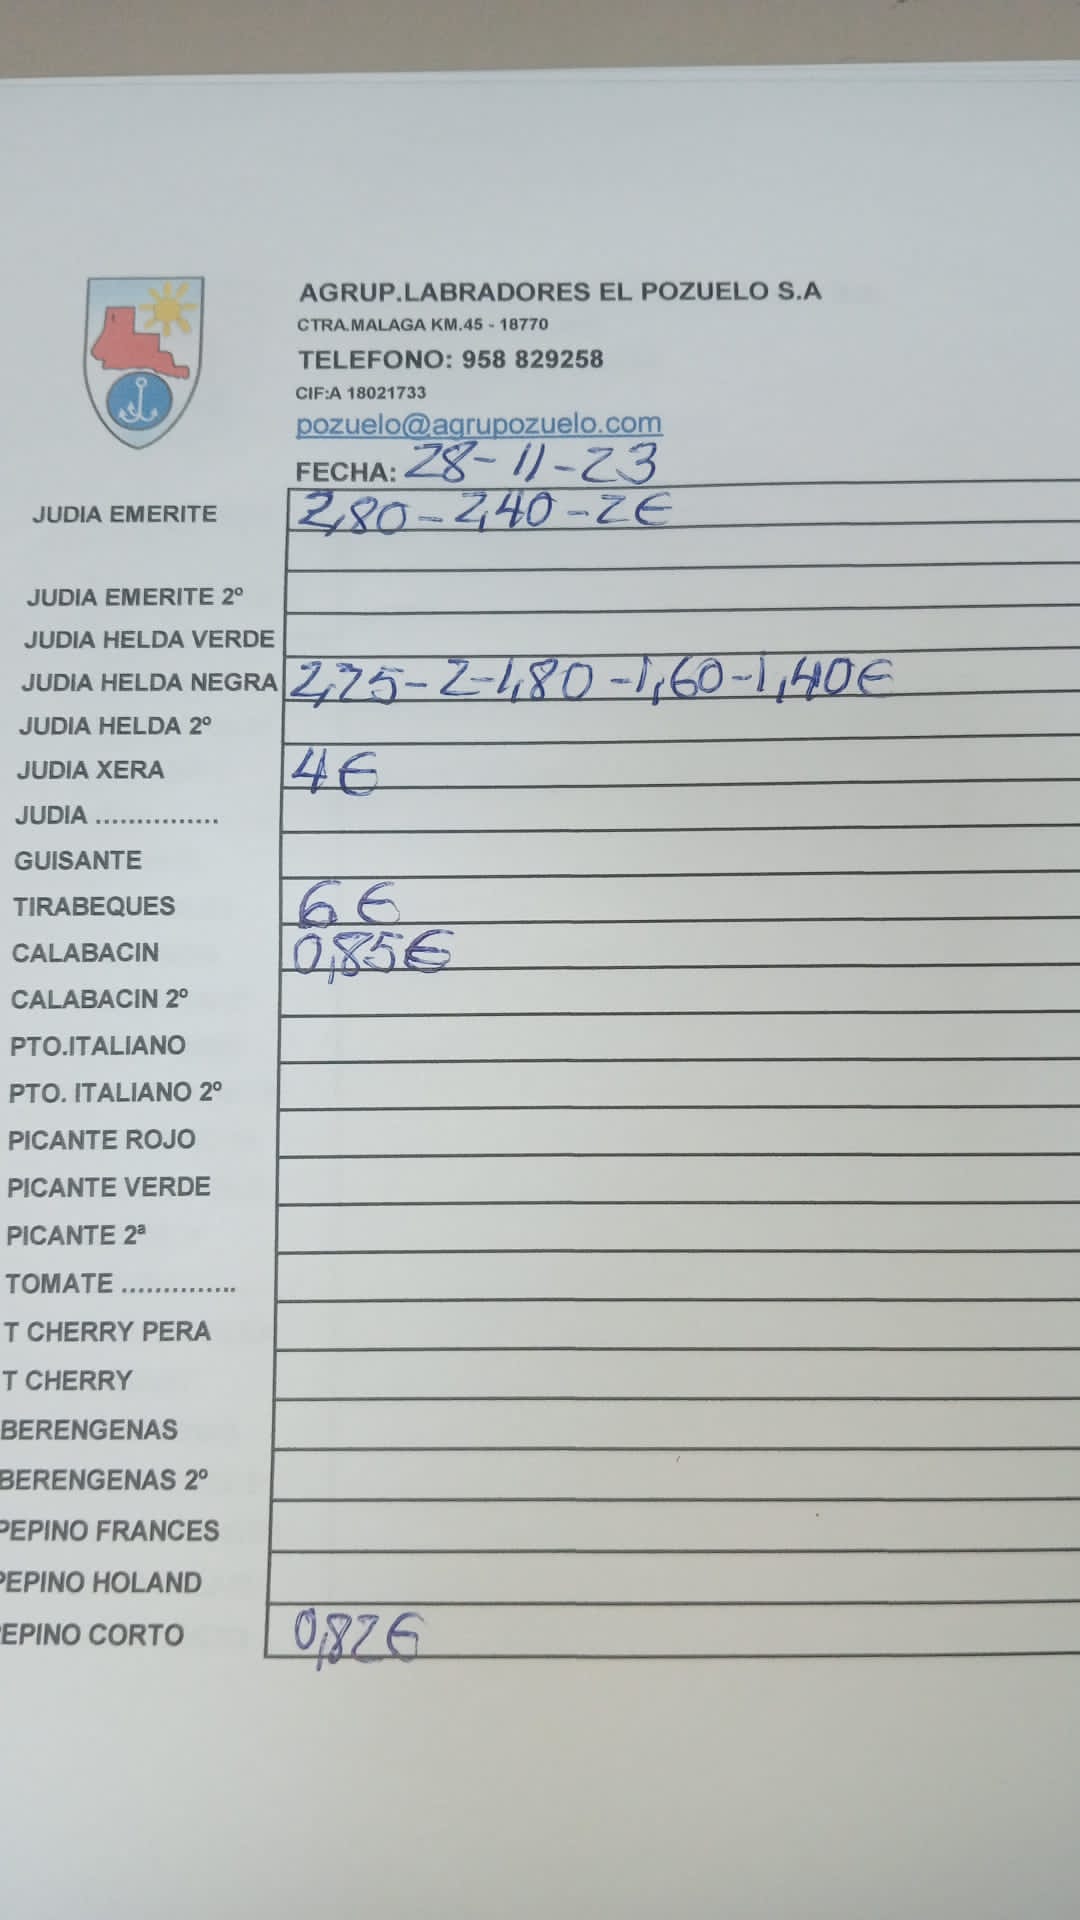 AGRUP.LABRADORES EL POZUELO S.A
CTRA.MALAGA KM.45 - 18770
TELEFONO: 958 829258
CIF:A 18021733
pozuelo@agrupozuelo.com
FECHA: 28-11-23
JUDIA EMERITE 2,80-2,40-2€
JUDIA EMERITE 2º
JUDIA HELDA VERDE
JUDIA HELDA NEGRA 2,25-2-1,80-1,60-1,40€
JUDIA HELDA 2º
JUDIA XERA 4€
JUDIA ...............
GUISANTE
TIRABEQUES 6€
CALABACIN 0,85€
CALABACIN 2º
PTO.ITALIANO
PTO. ITALIANO 2º
PICANTE ROJO
PICANTE VERDE
PICANTE 2ª
TOMATE ..............
T CHERRY PERA
T CHERRY
BERENGENAS
BERENGENAS 2º
PEPINO FRANCES
PEPINO HOLAND
EPINO CORTO 0,82€